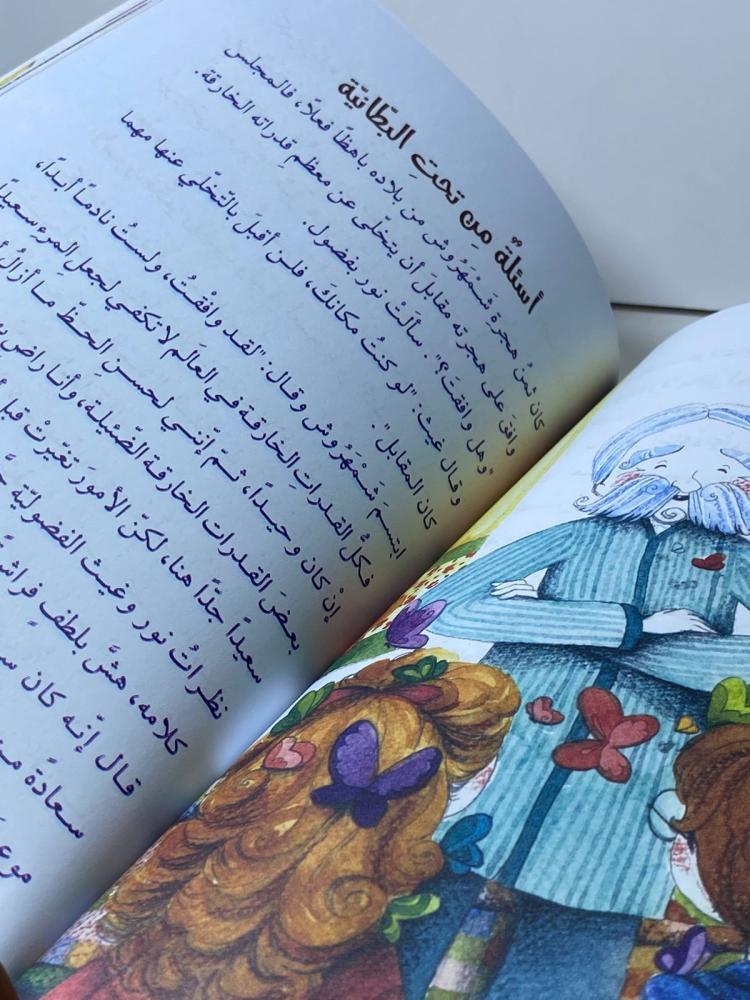 أسئلةٌ مِن تحتِ البطّانيّة
كان ثمنُ هجرةِ شَمْهَرُوش من بلاده باهظًا فعلًا، فالمجلس
وافقَ على هجرته مقابلَ أن يتخلّى عن معظمِ قدراته الخارقة.
"وهل وافقتَ؟". سألَتْ نور بفضول.
وقال غيث: "لو كنتُ مكانكَ، فلن أقبلَ بالتّخلّي عنها مهما
كان المقابل".
ابتسمَ شَمْهَرُوش وقال: "لقد وافقْتُ، ولستُ نادمًا أبدًا،
فكلُّ القدراتِ الخارقة في العالَم لا تكفي لجعلِ المرء سعيدًا
إنْ كان وحيدًا، ثمّ إنّني لحسنِ الحظّ ما أزالُ
بعضَ القدرات الخارقة الضّئيلة، وأنا راضٍ
سعيدًا جدًّا هنا، لكنّ الأمورَ تغيّرتْ قبل
نظراتُ نور وغيث الفضوليّة
كلامه، هشَّ بلطفٍ فراشة
قال إنّه كان
سعادةً